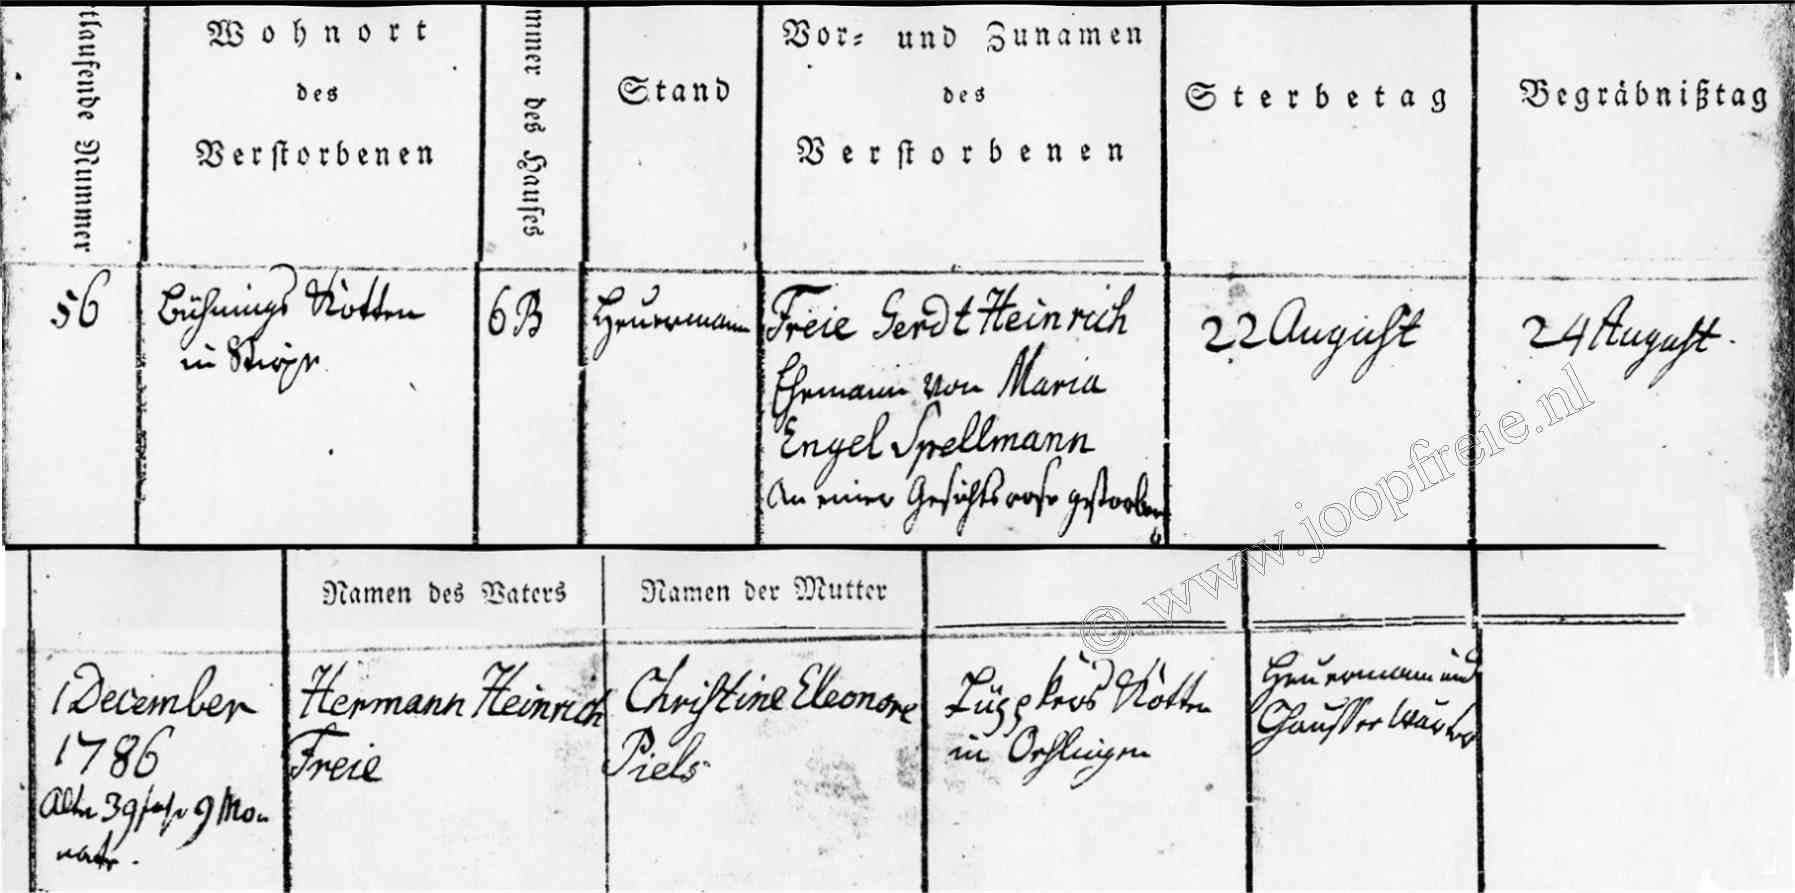 tlaufende Nummer
Wohnort
des
Verstorbenen
mmer des Hauses
Stand
Vor- und Zunamen
des
Verstorbenen
Sterbetag
Begräbnißtag
56
Bühnings Kotten
in
6B
Heuermann
Freie Gerdt Heinrich
Ehemann von Maria
Engel Spellmann
An einer Gesichtsrose gestorben
22 August
24 August.
Namen des Vaters
Namen der Mutter
1 December
1786
Alter 39 Jahr 9 Mo-
nate.
Hermann Heinrich
Freie
Christine Eleonore
Piels
Kotten
in Oehlingen
Heuermann und
Chausseewärter
© www.joopfreie.nl